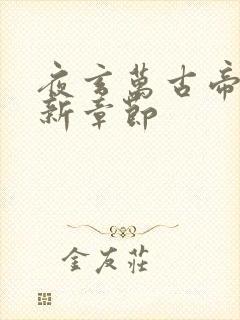 夜玄萬古帝
新章節
金友莊